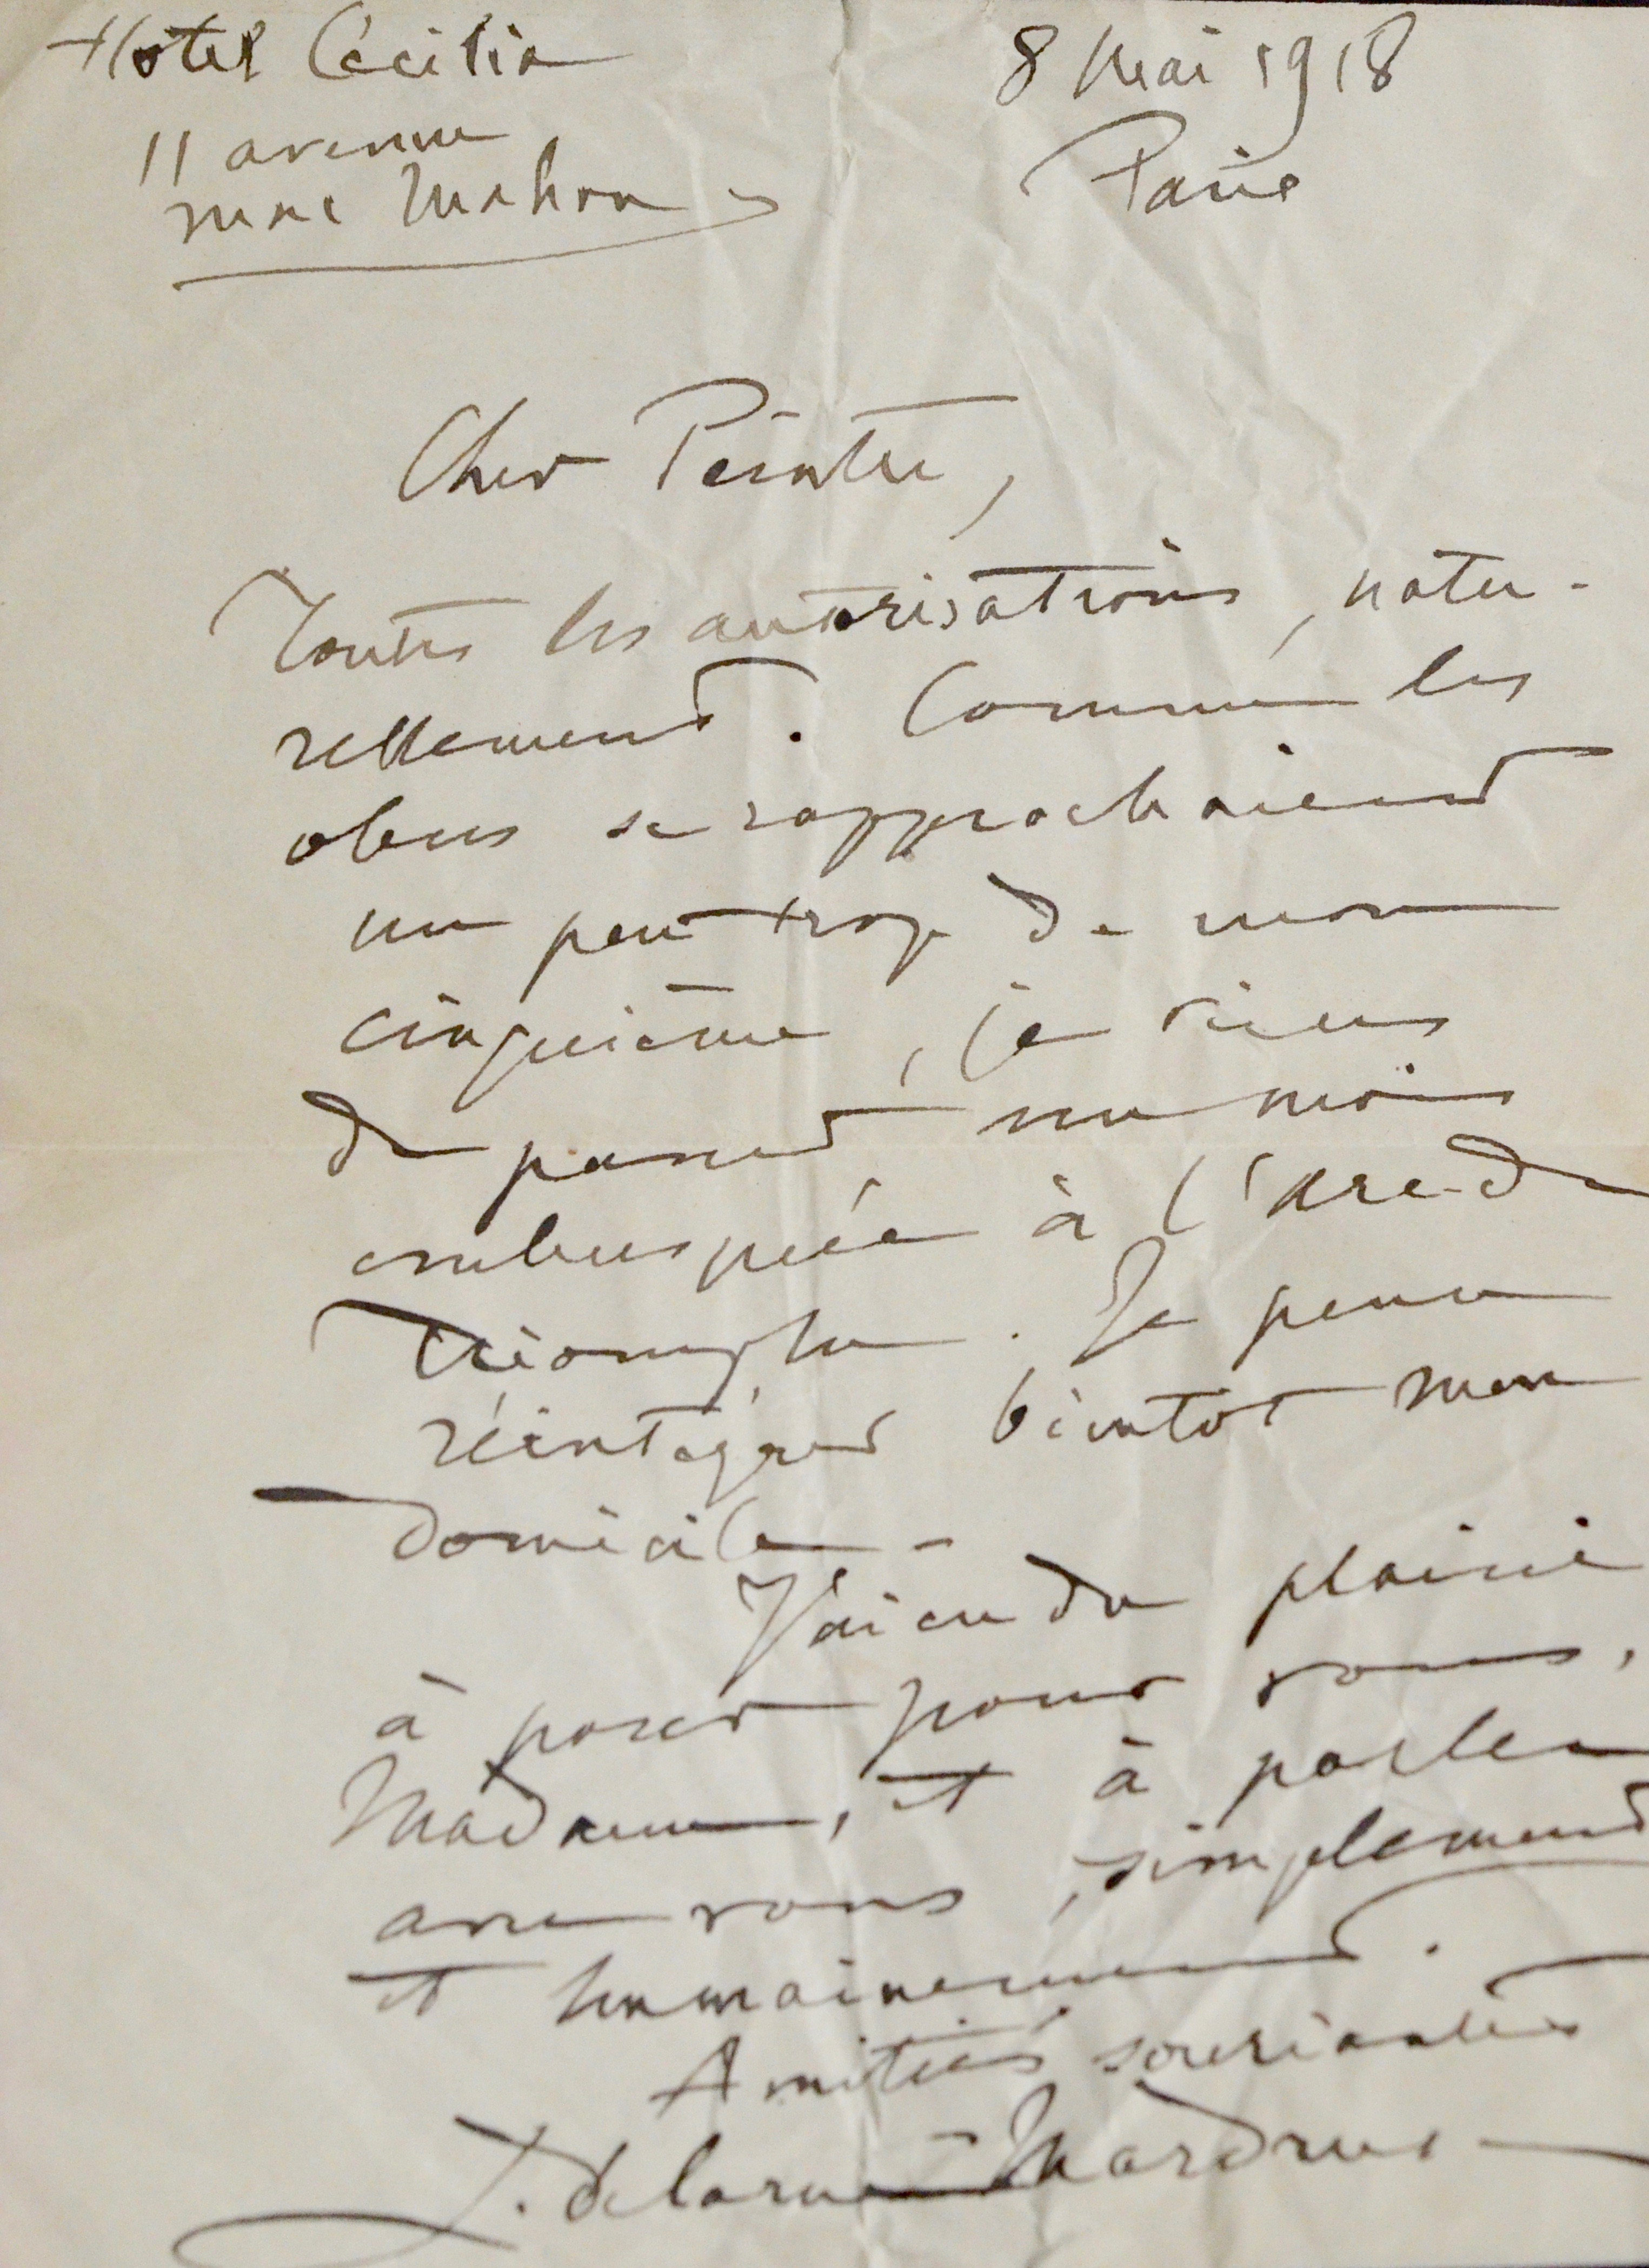 Hotel Cécilia
11 avenue
mac Mahon
8 Mai 1918
Paris
Cher Peintre,
Toutes les autorisations, natu-
rellement. Comme les
obus se rapprochaient
un peu trop de mon
cinquième, je viens
de passer un mois
embusquée à l'Arc-de
Triomphe. Je pense
réintégrer bientot mon
domicile -
J'ai eu du plaisir
à poser pour vous,
Madame, et à parler
avec vous, simplement
et humainement.
Amitiés souriantes
L. Delarue-Mardrus